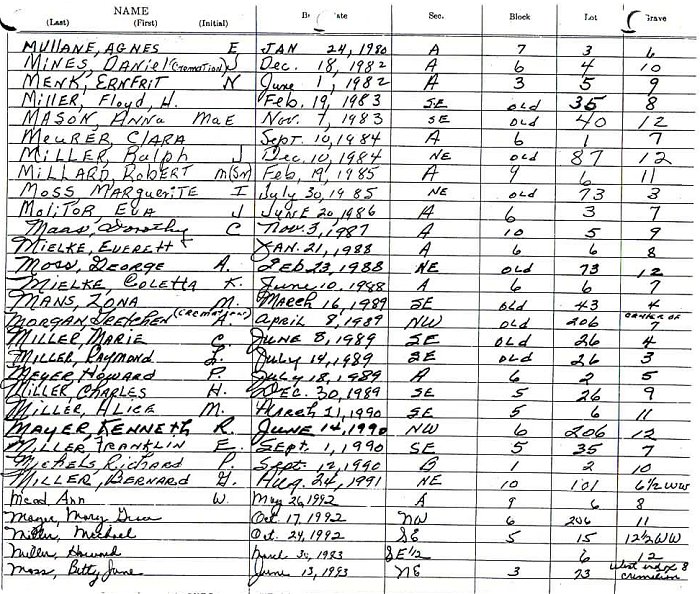 NAME B ate Sec. Block Lot Grave
(Last) (First) (Initial)
MULLANE, AGNES E JAN 24, 1980 A 7 3 6
MINES, DANIEL (cremation) J Dec. 18, 1982 A 6 4 10
MENK, ERNFRIT N June 1, 1982 A 3 5 9
Miller, Floyd, H. Feb. 19, 1983 SE OLD 35 8
MASON, ANNA MAE Nov. 7, 1983 SE OLD 40 12
MEURER, CLARA Sept. 10, 1984 A 6 1 7
MILLER, Ralph J Dec. 10, 1984 NE OLD 87 12
MILLARD, ROBERT M(Sr) Feb, 19, 1985 A 9 6 11
MOSS MARGUERITE I July 30, 1985 NE OLD 73 3
MOLITOR, EVA J JUNE 20, 1986 A 6 3 7
Maas, Dorothy C Nov. 3, 1987 A 10 5 9
MIELKE, EVERETT JAN. 21, 1988 A 6 6 8
MOSS, GEORGE A. FEB. 23, 1988 NE OLD 73 12
MIELKE, COLETTA K. June 10, 1988 A 6 6 7
MANS, ZONA M. MARCH 16, 1989 SE OLD 43 4
MORGAN, GRETCHEN (CREMATION) A. APRIL 8, 1989 NW OLD 206 CENTER OF 7
MILLER, MARIE C. JUNE 8, 1989 SE OLD 26 4
MILLER, RAYMOND L. JULY 14, 1989 SE OLD 26 3
MEYER, HOWARD P. JULY 18, 1989 A 6 2 5
MILLER, CHARLES H. DEC. 30, 1989 SE 5 26 9
MILLER, ALICE M. MARCH 21, 1990 SE 5 6 11
MAYER, KENNETH R. JUNE 14, 1990 NW 6 206 12
MILLER, FRANKLIN E. Sept. 1, 1990 SE 5 35 7
Michels, Richard P. Sept. 12, 1990 B 1 2 10
MILLER, BERNARD H. Aug. 24, 1991 NE 10 101 6 1/2 WW
Mead Ann W. May 26, 1992 A 9 6 8
Mary Oct. 17, 1992 NW 6 206 11
Miller, Michael Oct. 24, 1992 SE 5 15 12 1/2 WW
Miller, Howard March 30, 1993 SE 1/2 6 12
Moss, Betty Jane June 13, 1993 NE 3 73 West 8 cremation